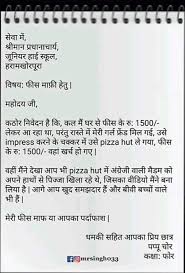 सेवा में,
श्रीमान प्रधानाचार्य,
जूनियर हाई स्कूल,
हरामखोरपूरा
विषय: फीस माफ़ी हेतु |
महोदय जी,
कठोर निवेदन है कि, कल मैं घर से फीस के रु: 1500/-
लेकर आ रहा था, परंतु रास्ते में मेरी गर्ल फ्रेंड मिल गई, उसे
impress करने के चक्कर में उसे pizza hut ले गया, फीस
के रु: 1500/- वहां खर्च हो गए |
वहीं मैंने देखा आप भी pizza hut में अंग्रेजी वाली मैडम को
अपने हाथों से पिज्जा खिला रहे थे, जिसका वीडियो मैंने बना
लिया है | आगे आप खुद समझदार हैं और बीवी बच्चों वाले
भी हैं |
मेरी फीस माफ या आपका पर्दाफाश |
धमकी सहित आपका प्रिय छात्र
पप्पू चोर
कक्षा: फोर
@mrsingh033